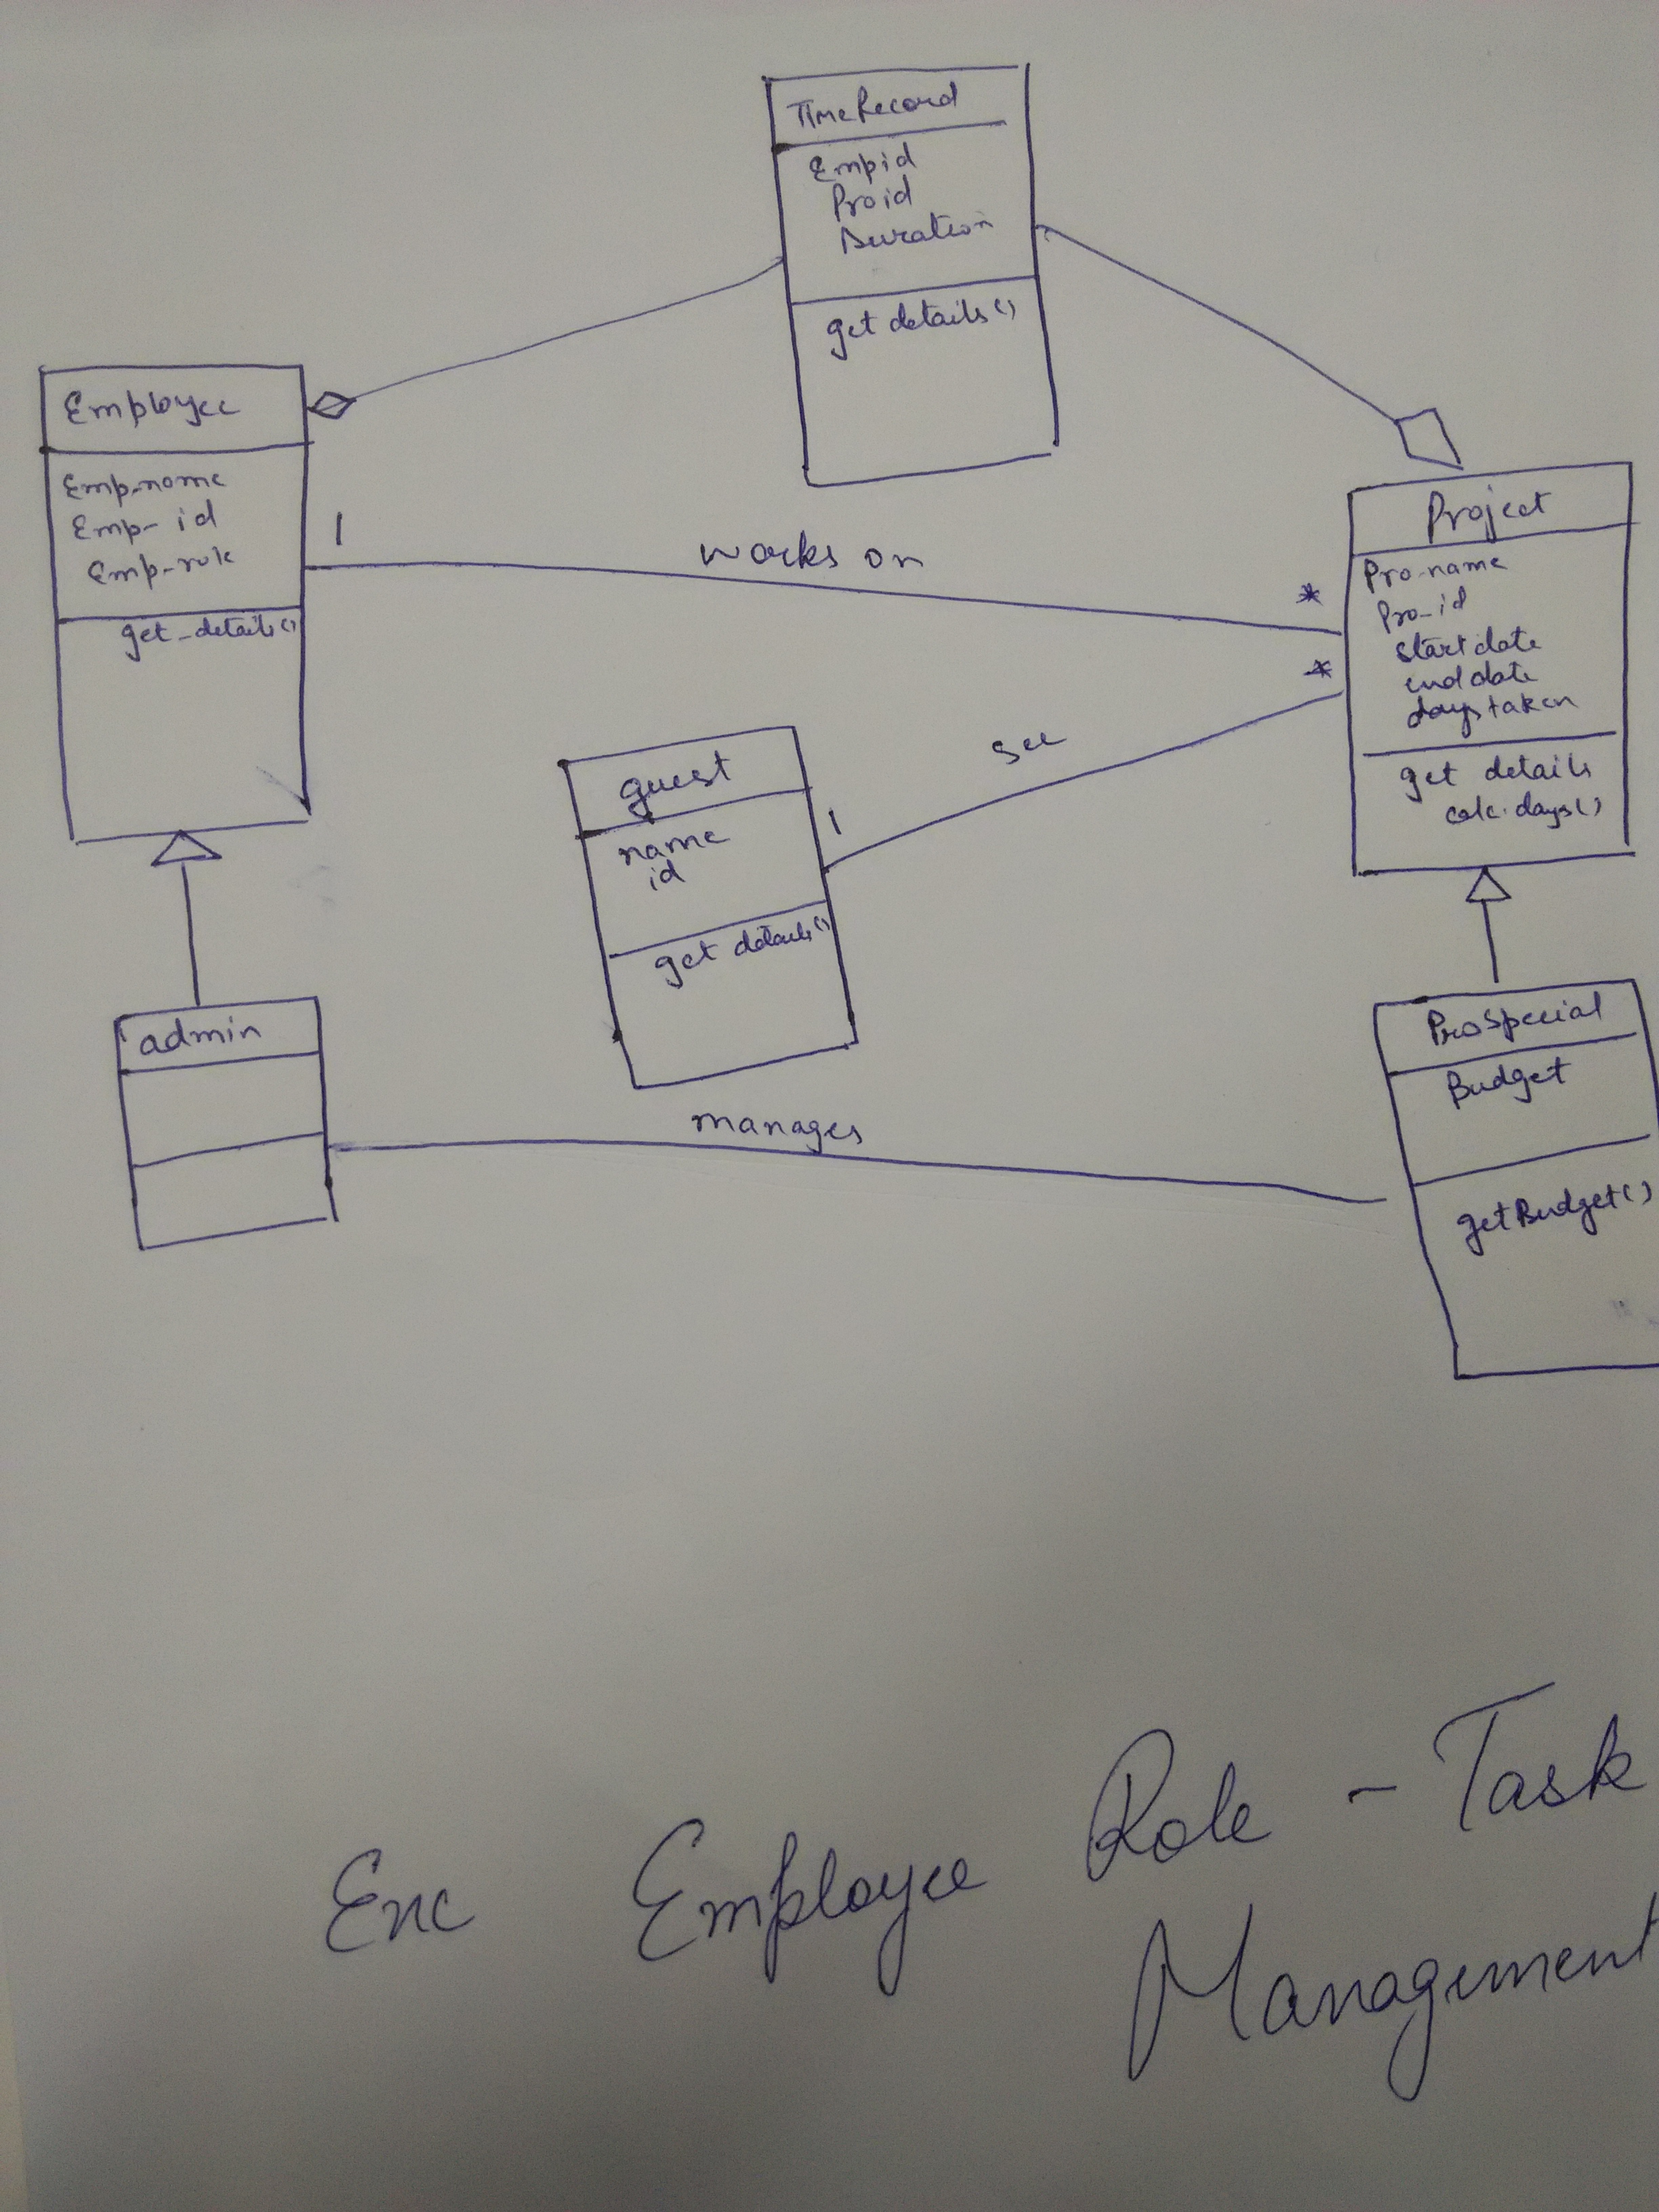 TimeRecord
Empid
Proid
Duration
get details()
Employee
Emp-name
Emp-id
Emp-role
get-details()
1
works on
*
Project
Pro-name
Pro-id
start date
end date
days taken
get details
calc.days()
*
see
1
guest
name
id
get details()
admin
manages
ProSpecial
Budget
getBudget()
Enc Employee Role - Task
Management